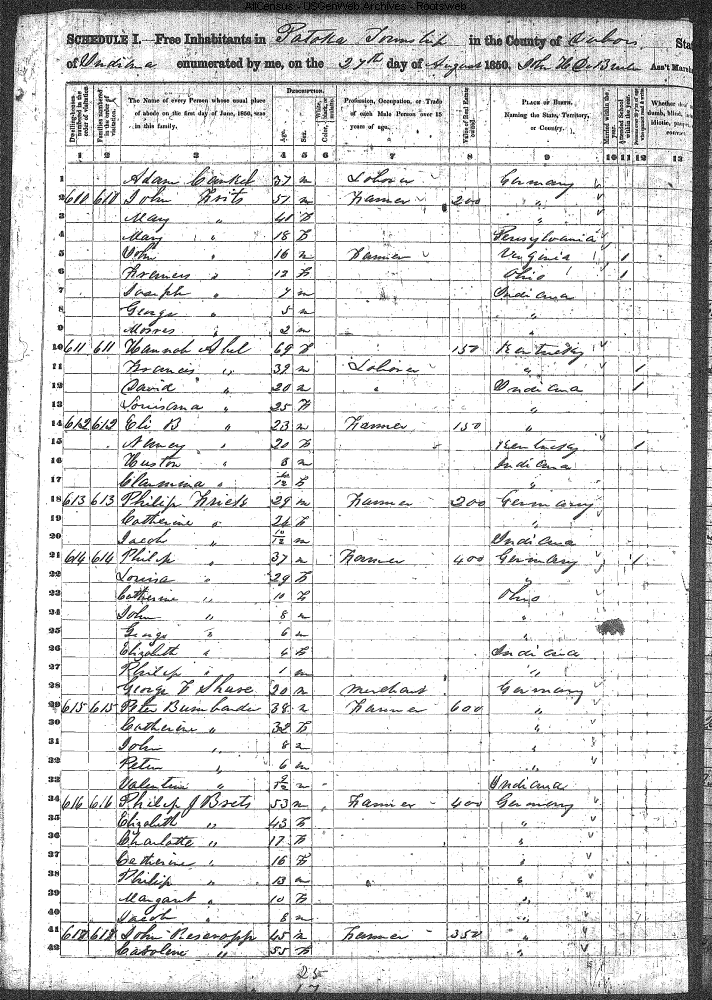 AllCensus - USGenWeb Archives - Rootsweb
SCHEDULE I.—Free Inhabitants in Patoka Township in the County of Dubois Sta
of Indiana enumerated by me, on the 27th day of August 1850. Ass't Marsh
Dwelling-houses numbered in the order of visitation
Families numbered in the order of visitation
The Name of every Person whose usual place of abode on the first day of June, 1850, was in this family.
DESCRIPTION.
Age.
Sex.
Color, White, black, or mulatto.
Profession, Occupation, or Trade of each Male Person over 15 years of age.
Value of Real Estate owned.
PLACE OF BIRTH. Naming the State, Territory, or Country.
Married within the year.
Attended School within the year.
Whether dea dumb, blind, idiotic, convict
1 2 3 4 5 6 7 8 9 10 11 12 13
1 Adam 37 m Laborer Germany
2 610 610 John Frits 51 m Farmer 200 "
3 Mary " 41 F "
4 Mary " 18 F Pensylvania
5 John " 16 m Farmer Virginia 1
6 Frances " 12 F Ohio 1
7 Joseph " 7 m Indiana
8 George " 5 m "
9 " 2 m "
10 611 611 Hannah Abel 69 F 150 Kentucky
11 Francis " 39 m Laborer " 1
12 David " 20 m " Indiana 1
13 Louisana " 25 F "
14 612 612 Eli B " 23 m Farmer 150 "
15 Nancy " 20 F Kentucky 1
16 Huston " 3 m Indiana
17 " F "
18 613 613 Philip Friets 29 m Farmer 200 Germany
19 Catherine " 26 F "
20 Jacob " 10/12 m Indiana
21 614 614 Philip " 37 m Farmer 400 Germany 1
22 Louisa " 29 F "
23 Catherine " 10 F Ohio
24 John " 8 m "
25 George " 6 m "
26 Elizabeth " 4 F Indiana
27 Philip " 1 m "
28 George F 20 m Merchant Germany
29 615 615 Peter Bumbarder 38 m Farmer 600 "
30 Catherine " 32 F "
31 John " 8 m "
32 Peter " 6 m "
33 Valentine " m Indiana
34 616 616 Philip J Brets 53 m Farmer 400 Germany
35 Elizabeth " 43 F "
36 Charlotte " 17 F "
37 Catherine " 16 F "
38 Philip " 13 m "
39 Margaret " 10 F "
40 Jacob " 8 m "
41 John 45 m Farmer 350 "
42 Caroline " 55 F "